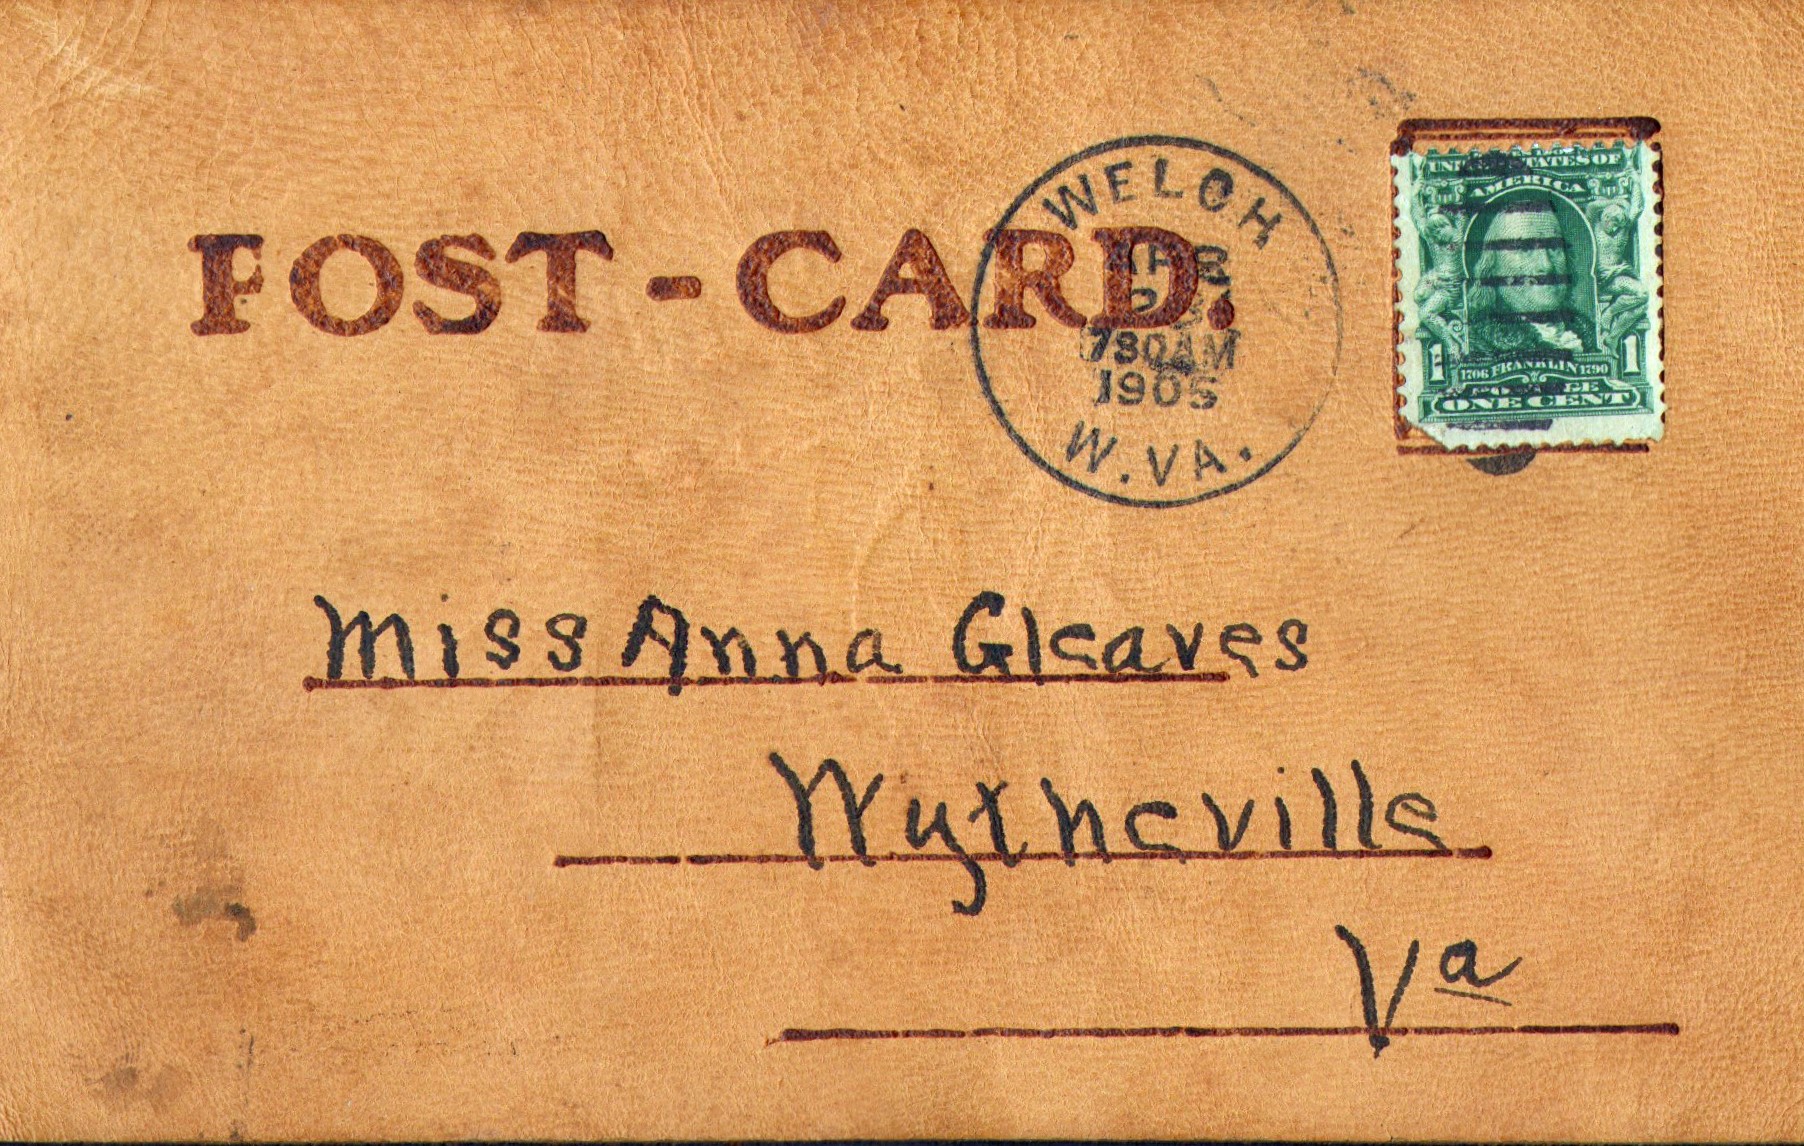 POST-CARD.
WELCH
APR
23
730AM
1905
W. VA.
UNITED STATES OF
AMERICA
1 1706 FRANKLIN 1790 1
POSTAGE
ONE CENT
Miss Anna Gleaves
Wytheville
Va